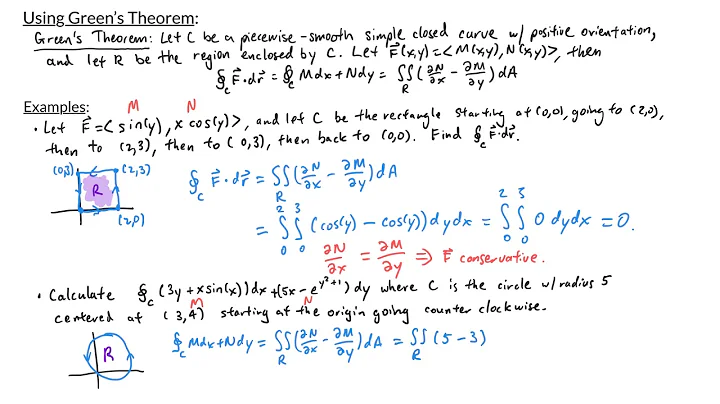 Using Green's Theorem:
Green's Theorem: Let C be a piecewise-smooth simple closed curve w/ positive orientation,
and let R be the region enclosed by C. Let F⃗(x,y)=<M(x,y),N(x,y)>, then
∮_C F⃗·dr⃗ = ∮_C Mdx+Ndy = ∬_R (∂N/∂x - ∂M/∂y)dA
Examples:
M N
• Let F⃗=<sin(y), x cos(y)>, and let C be the rectangle starting at (0,0), going to (2,0),
then to (2,3), then to (0,3), then back to (0,0). Find ∮_C F⃗·dr⃗.
(0,3) (2,3)
R
(2,0)
∮_C F⃗·dr⃗ = ∬_R (∂N/∂x - ∂M/∂y)dA
= ∫_0^2 ∫_0^3 (cos(y) - cos(y))dydx = ∫_0^2 ∫_0^3 0 dydx = 0.
∂N/∂x = ∂M/∂y ⇒ F⃗ conservative.
• Calculate ∮_C (3y+xsin(x))dx+(5x-e^(y²+1))dy where C is the circle w/ radius 5
M N
centered at (3,4) starting at the origin going counter clockwise.
R
∮_C Mdx+Ndy = ∬_R (∂N/∂x - ∂M/∂y)dA = ∬_R (5-3)